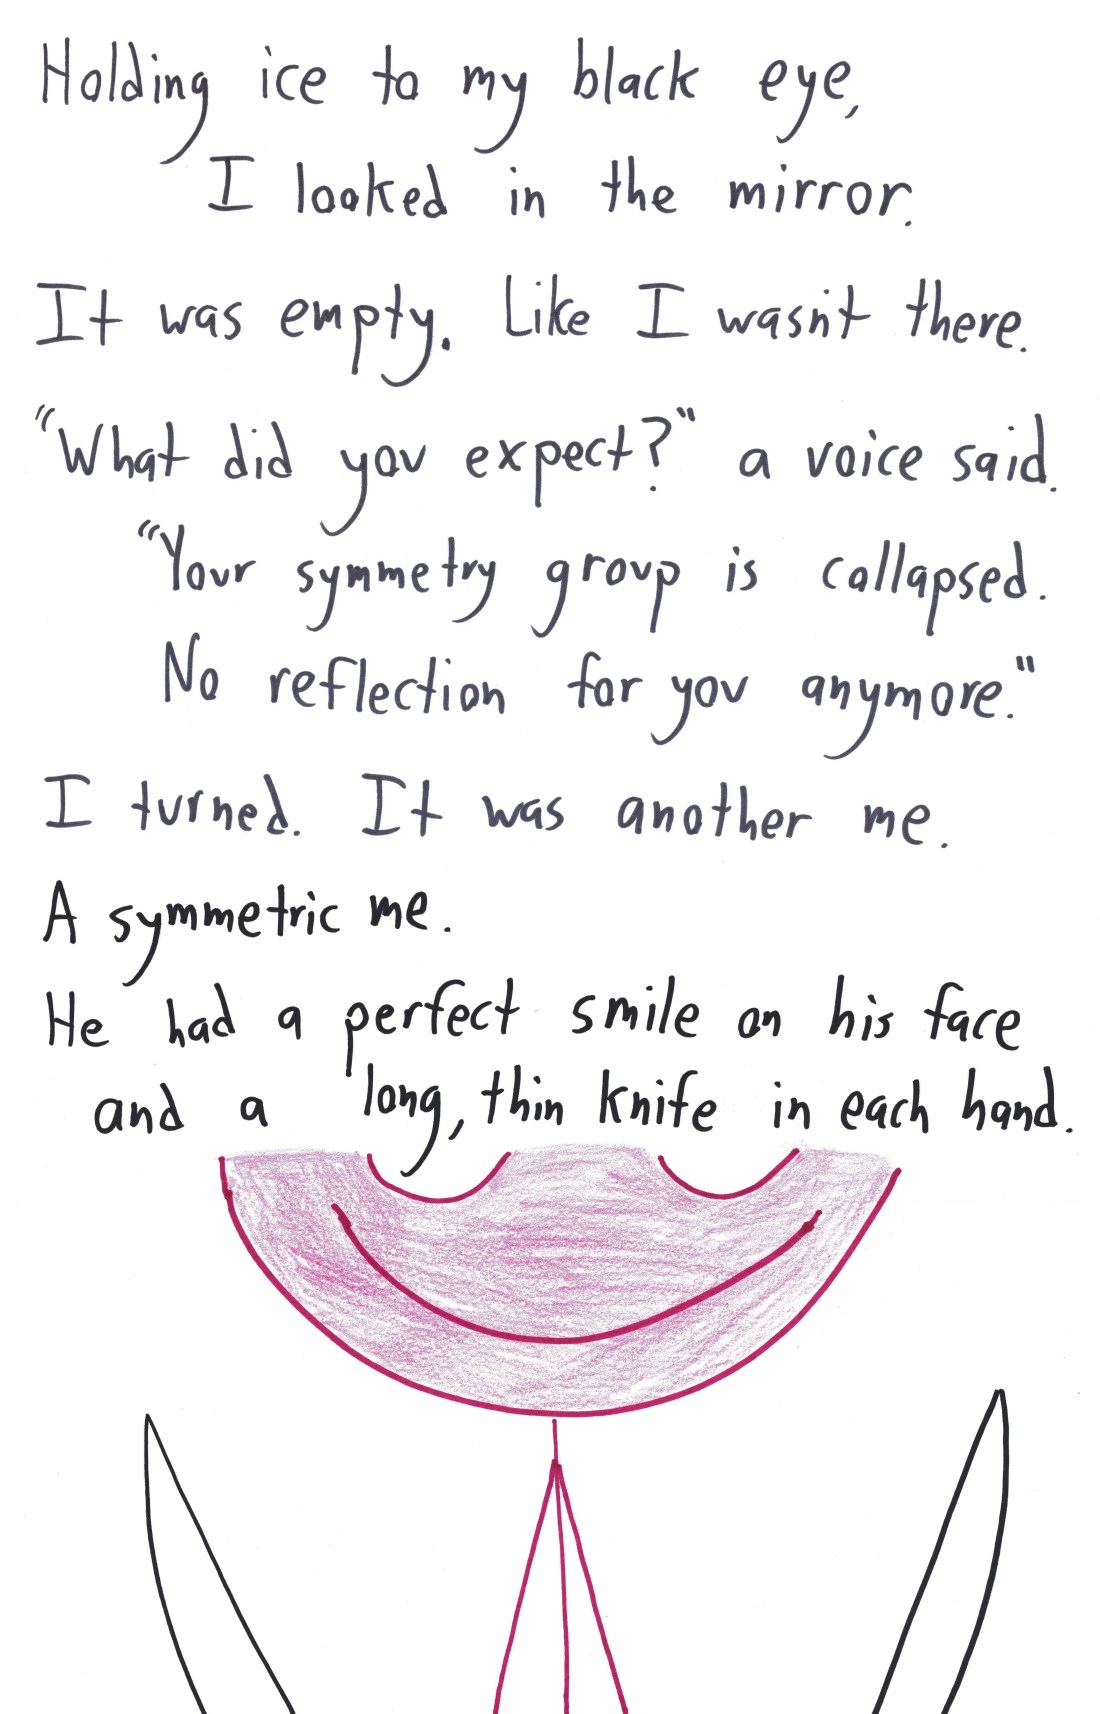 Holding ice to my black eye,
I looked in the mirror.
It was empty. Like I wasn't there.
"What did you expect?" a voice said.
"Your symmetry group is collapsed.
No reflection for you anymore."
I turned. It was another me.
A symmetric me.
He had a perfect smile on his face
and a long, thin knife in each hand.